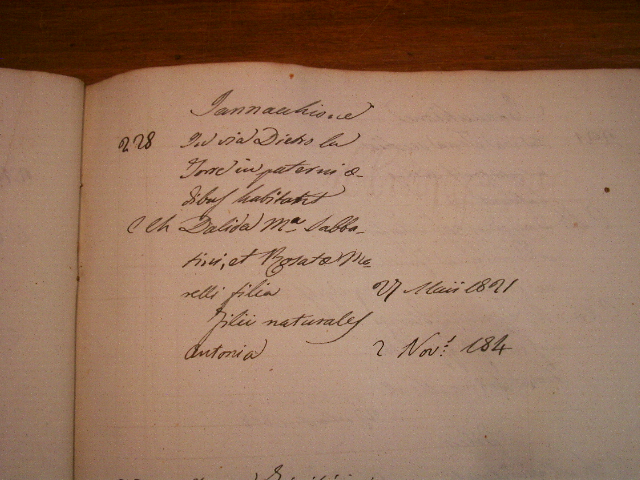 Iannacchione
228 In via Dietro la
Torre in paternis æ-
dibus habitant
C Ch Dalida Mª Sabba-
tini, et Rosatæ
relli filia 27 Maii 1821
filii naturales
Antonia 2 Nov.s 184